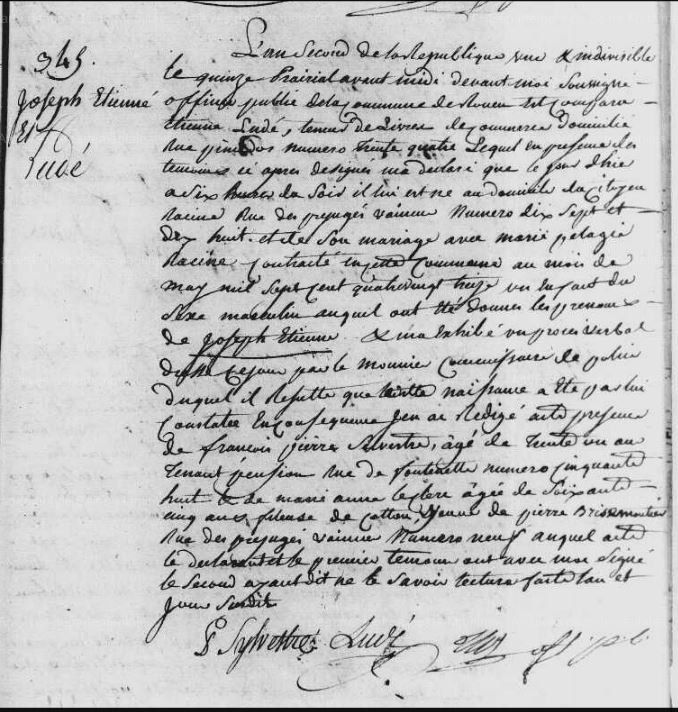 345
Joseph Etienne
Et
Ludé
L'an Second de la Republique une & indivisible
le quinze Prairial avant midi devant moi Soussigné
officier public de la Commune de Rouen Est Comparu
Etienne Ludé, teneur de Livres de Commerce domicilié
Rue numero trente quatre Lequel en presence des
temoins ci apres designés m'a declaré que le jour d'hier
a Six heures du Soir il lui est né au domicile du Citoyen
Racine Rue des prejugés vaincus Numero dix Sept et
dix huit et de Son mariage avec marie pelagie
Racine Contracté en cette Commune au mois de
may mil Sept Cent quatrevingt treize un Enfant du
Sexe masculin auquel ont été donnés les prenoms
de Joseph Etienne & m'a Exhibé un procès verbal
de ce jour par le monnier Commissaire de police
duquel il Resulte que ladite naissance a Eté par lui
Constatée En consequence J'en ai Rédigé acte presence
de françois pierre Silvestre, âgé de trente un an
tenant pension Rue de fontenelle numero cinquante
huit & de marie anne leclerc âgée de Soixante
cinq ans fileuse de Cotton, veuve de pierre Brissemontier
Rue des prejugés vaincus Numero neuf auquel acte
le declarant et le premier temoin ont avec moi Signé
le Second ayant dit ne le Savoir lecture faite l'an et
Jour Susdit
P Sylvestre Ludé off. pub.